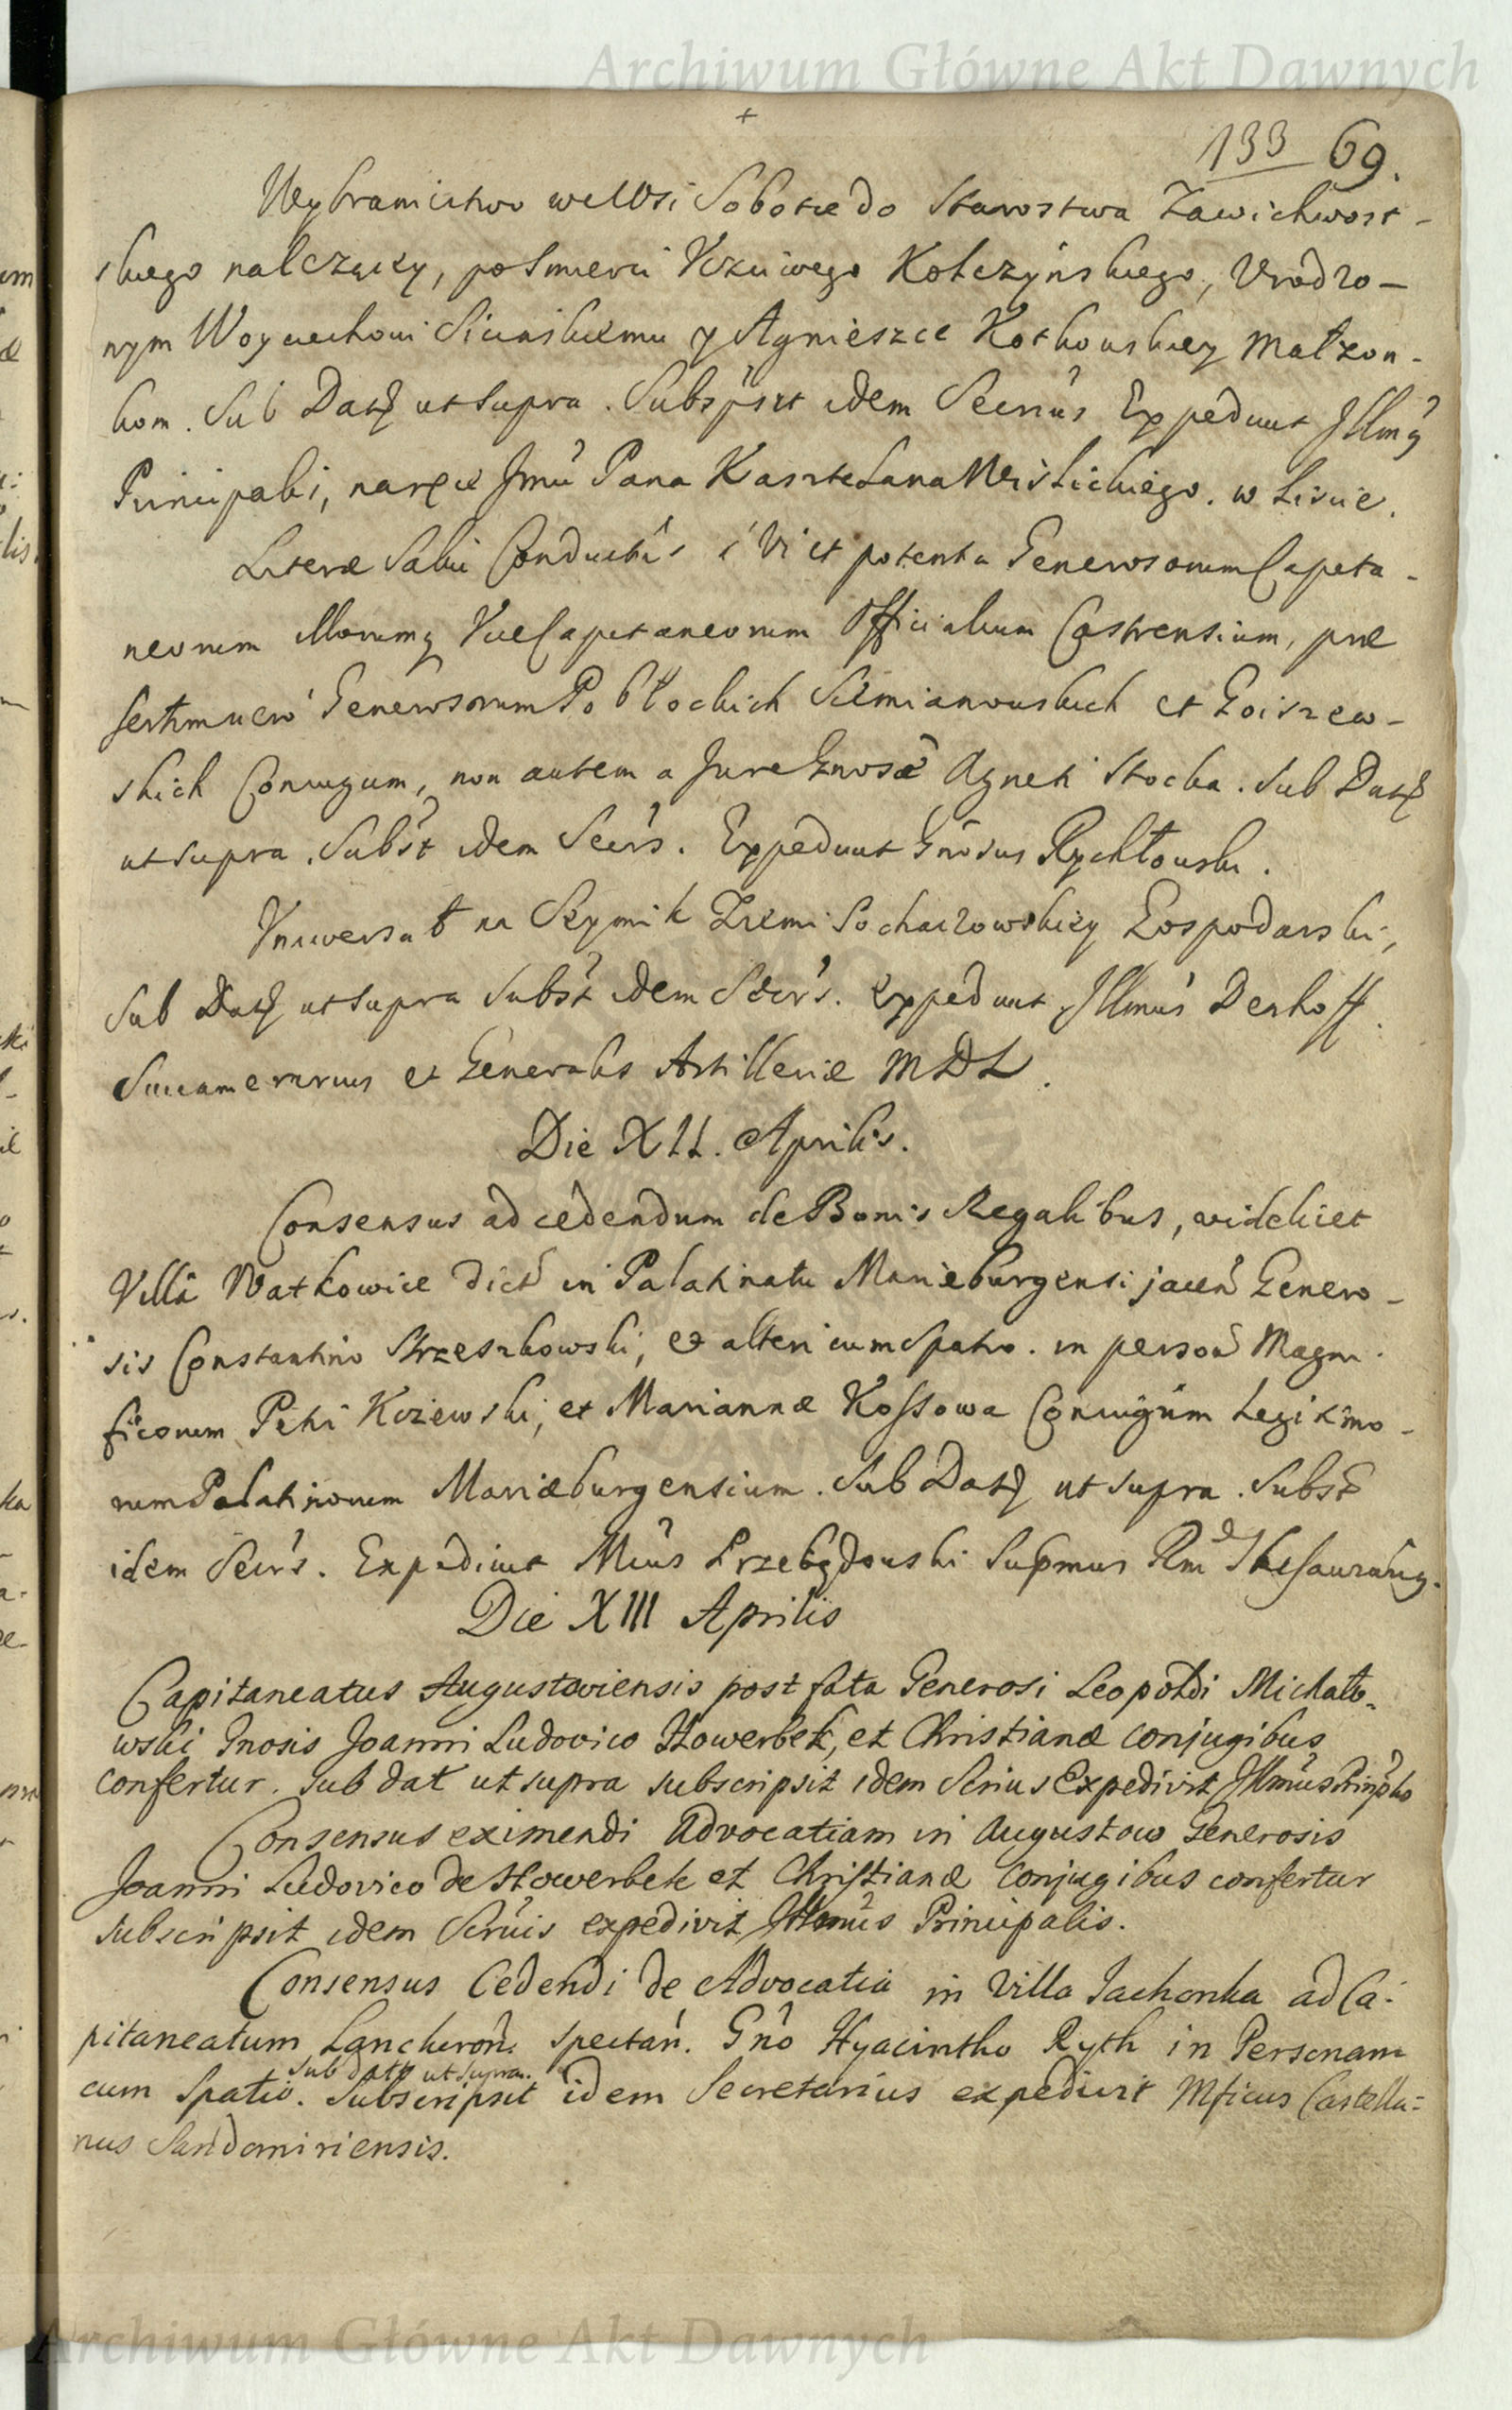 Archiwum Główne Akt Dawnych
+
133 69.
Wybranictwo we Wsi Sobotce do Starostwa Zawichwost-
skiego należący, po śmierci Vczciwego Kołczyńskiego, Vrodzo-
nym Woyciechowi Siemieńskiemu y Agnieszce Kotkowskiey Małżon-
kom. Sub Datt ut supra. Subsþsit idem Secrius Expediuit Jllmꝯ
Principalis, na ręce Jmci Pana Kasztelana Wislickiego. w Liscie.
Literæ Salui Conductûs á Vi et potentia Generosorum Capita-
neorum illorumq̃ ViceCapitaneorum Officialium Castrensium, præ
sertim uero Generosorum Pobłockich Siemianowskich et Goiszew-
skich Coniugum, non autem a Jure Gnosæ Agneti Stocka. Sub Datt
ut supra. Subst idem Secrs. Expediuit Gnosus Rychłouski.
Vniuersał na Seymik Ziemi Sochaczowskiey Gospodarski,
sub Datt ut supra Subst idem Secrs. Expediuit Jllmus Denhoff
Succamerarius et Generalis Artilleriæ MDL.
Die XII. Aprilis.
Consensus ad cedendum de Bonis Regalibus, videlicet
Villâ Watkowice dict in Palatinatu Mariæburgensi jacen Genero-
sis Constantino Strzeszkowski, et alteri cum Spatio. in person Magni-
ficorum Petri Kczewski, et Mariannæ Kossowa Coniugum Legitimo-
rum Palatinorum Mariæburgensium. Sub Datt ut supra. Subst
idem Secrs. Expediuit Mcus Przebędouski Supmus Rni Thesaurariꝯ.
Die XIII Aprilis
Capitaneatus Augustoviensis post fata Generosi Leopoldi Michało-
wski Gnosis Joanni Ludovico Howerbek, et Christianæ conjugibus
confertur. sub dat ut supra subscripsit idem Scrius Expedivit Jllmus
Consensus eximendi Advocatiam in Augustow Generosis
Joanni Ludovico de Howerbek et Christianæ conjugibus confertur
subscripsit idem Scrius expedivit Jllmus Principalis.
Consensus Cedendi de Advocatia in Villa Jachonka ad Ca-
pitaneatum Lanckoron. spectan. Gno Hyacintho Ryth in Personam
sub datt ut supra.
cum spatio. Subscripsit idem Secretarius expedivit Mficus Castella-
nus Sandomiriensis.
Archiwum Główne Akt Dawnych